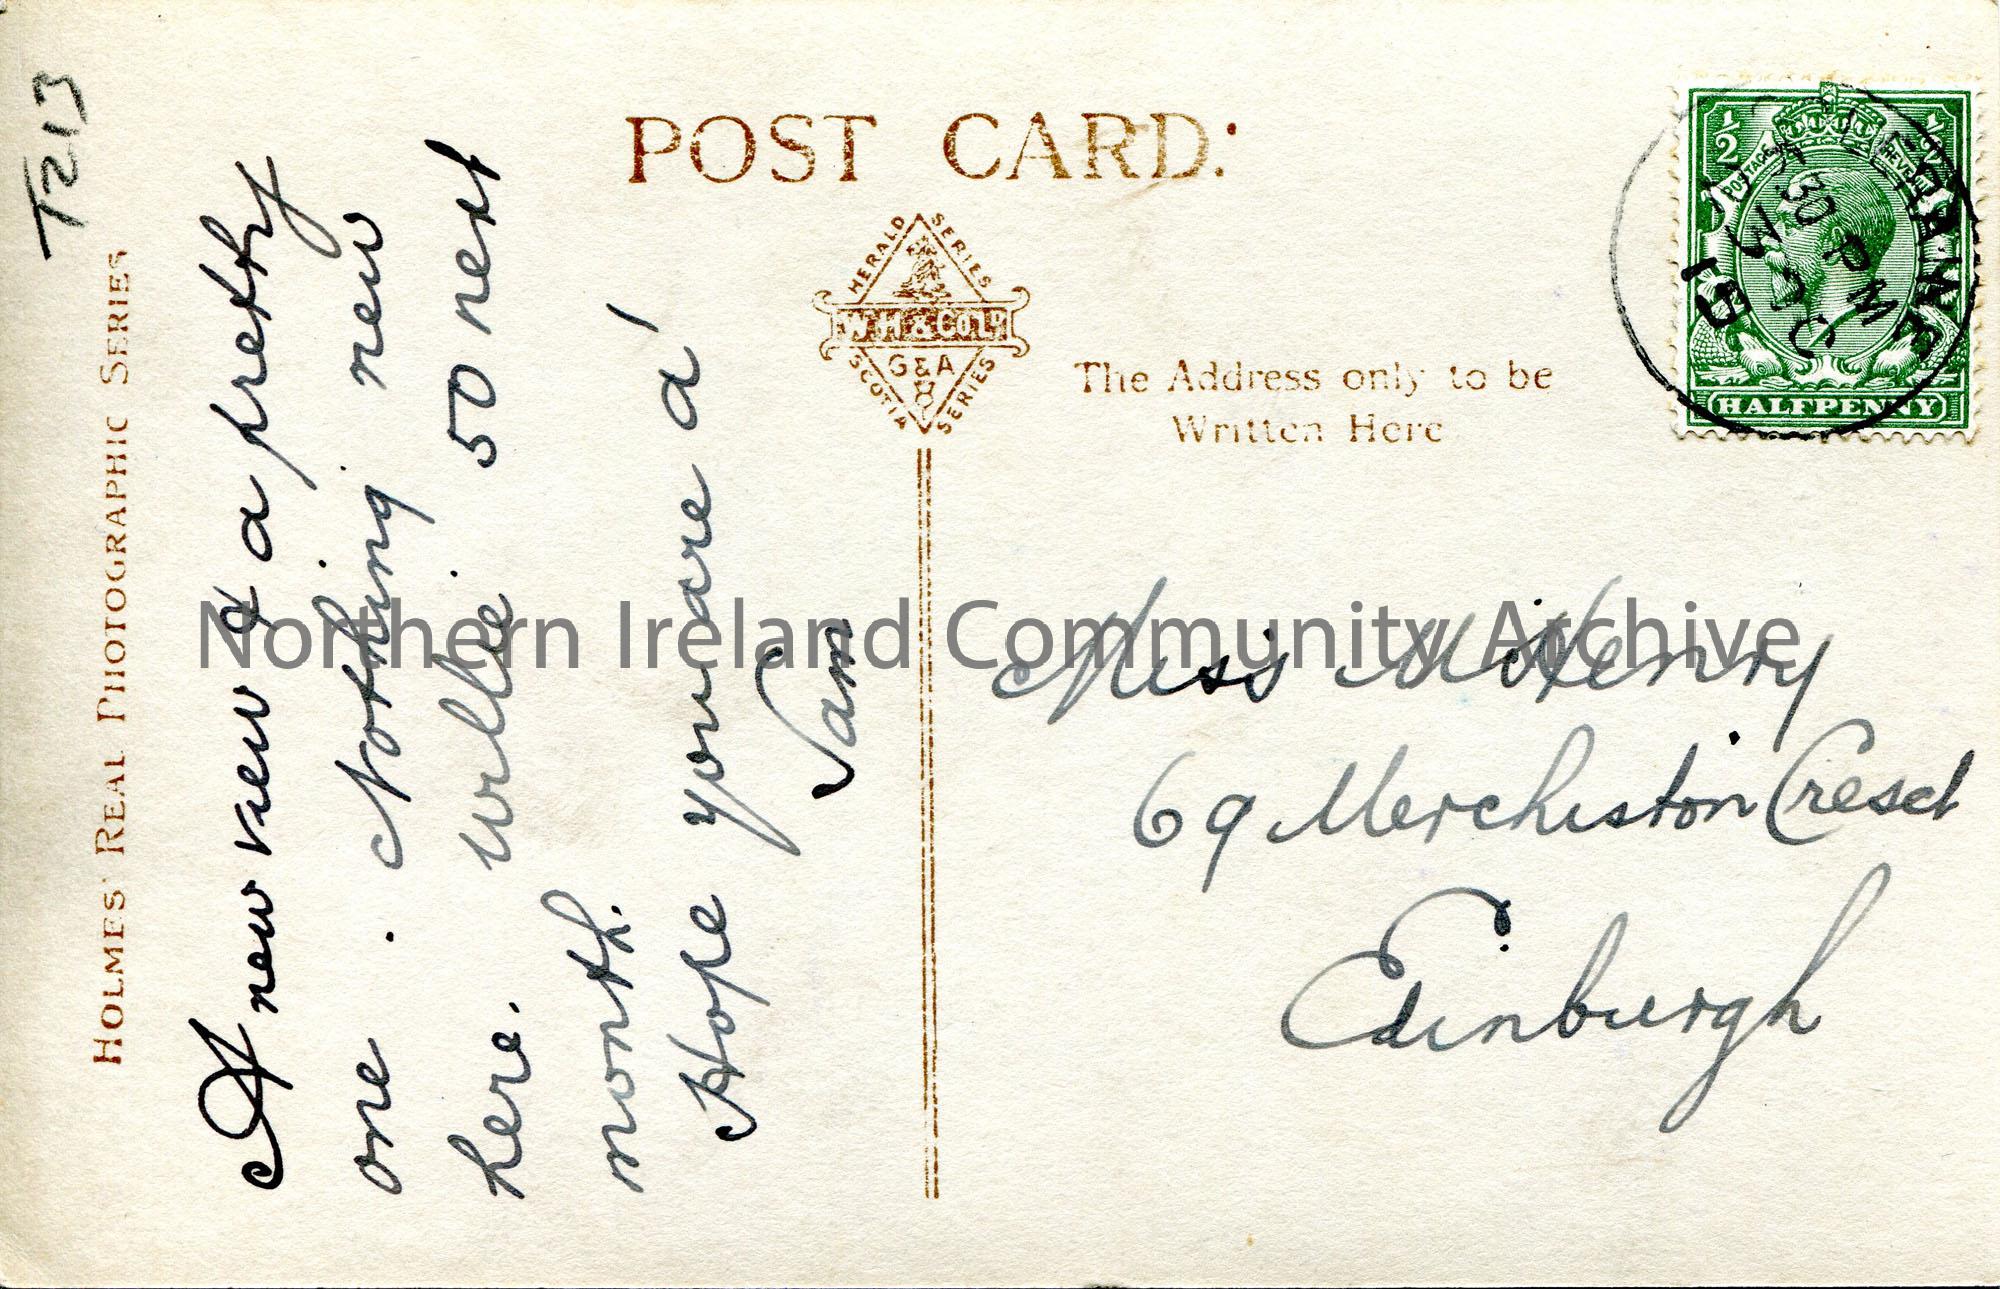 T213
HOLMES' REAL PHOTOGRAPHIC SERIES
A new view of a pretty
one. Nothing new
here. Willie 50 next
month.
Hope you are a'
Sam
POST CARD:
HERALD SERIES
W.H & Co Ld
G & A
8
SCOTIA SERIES
The Address only to be
Written Here
½ ½
POSTAGE REVENUE
HALFPENNY
COLERAINE
30 PM
3 DC
19
Miss McHenry
69 Merchiston Cresct
Edinburgh
Northern Ireland Community Archive